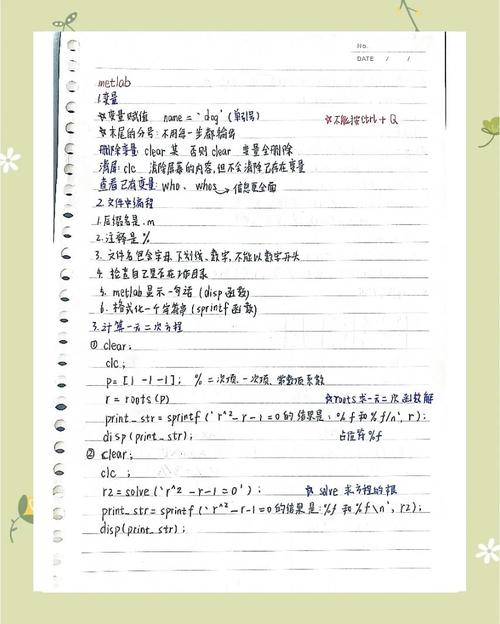 No.
DATE / /
metlab
1.变量
☆变量赋值 name = 'dog' (单引号) ☆不能按ctrl + Q
☆末尾的分号:不用每一步都输出
删除变量: clear 某 否则 clear 变量全删除
清屏: clc 清除屏幕的内容,但不会清除已存在变量
查看已存变量: who、whos → 信息更全面
2.文件中编程
1.后缀名是.m
2.注释是%
3.文件名包含字母、下划线、数字,不能以数字开头
4.检查自己是否在项目录
5. metlab 显示一句话 (disp 函数)
6.格式化一个字符串 (sprintf 函数)
3.计算一元二次方程
① clear;
clc;
p= [1 -1 -1]; % =二次项、一次项、常数项系数
r = roots(p) ☆roots求一元二次函数解
print_str = sprintf ('r^2-r-1=0的结果是:%f 和 %f/n', r);
disp(print_str); 占位符%f
② clear;
clc ;
r2 = solve ('r^2 -r-1=0'); ☆ solve 求方程的根
print_str = sprintf ('r^2-r-1=0的结果是:%f 和%f\n', r2);
disp(print_str);